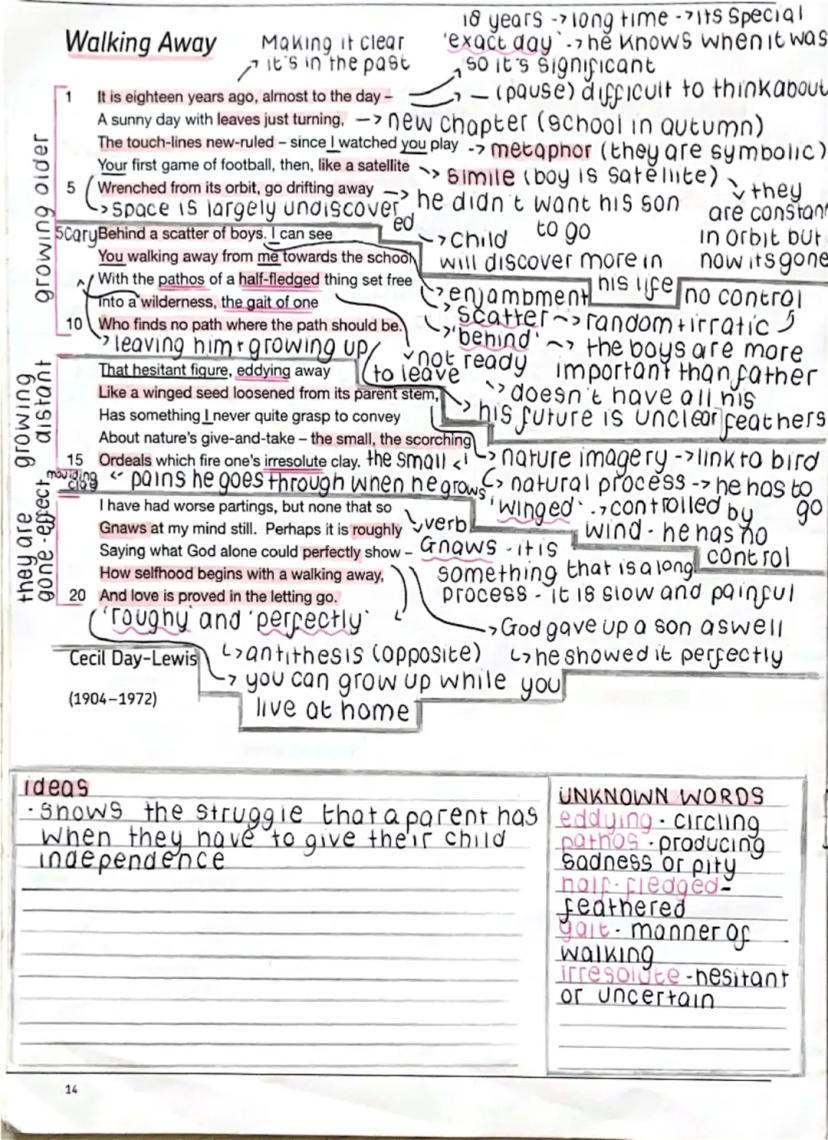 18 years -> long time -> its special
Walking Away
Making it clear
it's in the past
'exact day' -> he knows when it was
so it's significant
— (pause) difficult to think about
1 It is eighteen years ago, almost to the day –
A sunny day with leaves just turning, -> new chapter (school in autumn)
The touch-lines new-ruled – since I watched you play -> metaphor (they are symbolic)
Your first game of football, then, like a satellite ~> simile (boy is satellite)
5 Wrenched from its orbit, go drifting away -> he didn't want his son
to go
they
are constant
in orbit but
now its gone
growing older
space is largely undiscover
ed
scary Behind a scatter of boys. I can see
-> Child
will discover more in
his life
You walking away from me towards the school
With the pathos of a half-fledged thing set free
Into a wilderness, the gait of one
10 Who finds no path where the path should be.
enjambment
no control
scatter ~> random + irratic
'behind' ~> the boys are more
important than father
leaving him + growing up
not ready
to leave
~> doesn't have all his
feathers
they are growing distant
That hesitant figure, eddying away
Like a winged seed loosened from its parent stem,
his future is unclear
Has something I never quite grasp to convey
About nature's give-and-take – the small, the scorching
15 Ordeals which fire one's irresolute clay.
the small
nature imagery -> link to bird
natural process -> he has to
go
pains he goes through when he grows
'winged' -> controlled by
wind - he has no
control
I have had worse partings, but none that so
Gnaws at my mind still. Perhaps it is roughly
verb
Saying what God alone could perfectly show –
Gnaws - it is
How selfhood begins with a walking away,
something that is a long
20 And love is proved in the letting go.
process - it is slow and painful
gone
'roughy' and 'perfectly'
-> God gave up a son aswell
Cecil Day-Lewis
-> antithesis (opposite)
-> he showed it perfectly
-> you can grow up while you
(1904–1972)
live at home
ideas
• shows the struggle that a parent has
when they have to give their child
independence
UNKNOWN WORDS
eddying - circling
pathos - producing
sadness or pity
half-fledged -
feathered
gait - manner of
walking
irresolute - hesitant
or uncertain
14